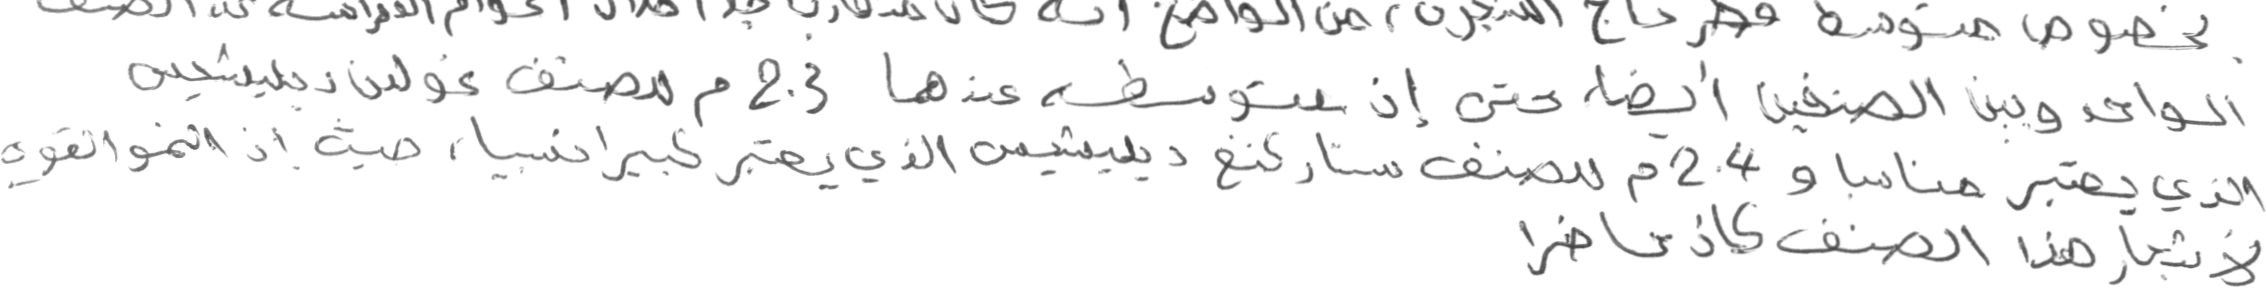 بخصوص متوسط قطر تاج الشجرة، من الواضح أنه كان متقاربا جدا خلال أعوام الدراسة عند الصنف
الواحد وبين الصنفين أيضا، حتى إن متوسطه عندها 2.3 م للصنف غولدن ديليشيس
الذي يعتبر مناسبا و 2.4 م للصنف ستاركنغ ديليشيس الذي يعتبر كبيرا نسبيا، حيث إن النمو القوي
لأشجار هذا الصنف كان حاضرا